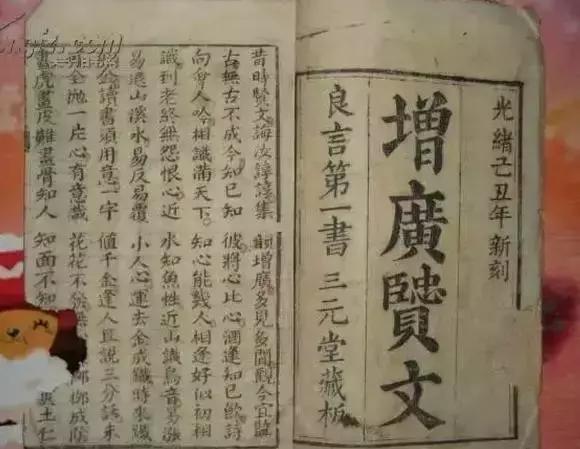 光緒己丑年新刻
增廣賢文
良言第一書 三元堂藏板
昔時賢文誨汝諄諄集 韻增廣多見多聞觀今宜鑒
古無古不成今知己知 彼將心比心酒逢知己飲詩
向會人吟相識滿天下 知心能幾人相逢好似初相
識到老終無怨恨心近 水知魚性近山識鳥音易漲
易退山溪水易反易覆 小人心運去金成鐵時來鐵
似金讀書須用意一字 值千金逢人且說三分話未
可全拋一片心有意栽 花花不發無 柳成陰
畫虎畫皮難畫骨知人 知面不知 土仁